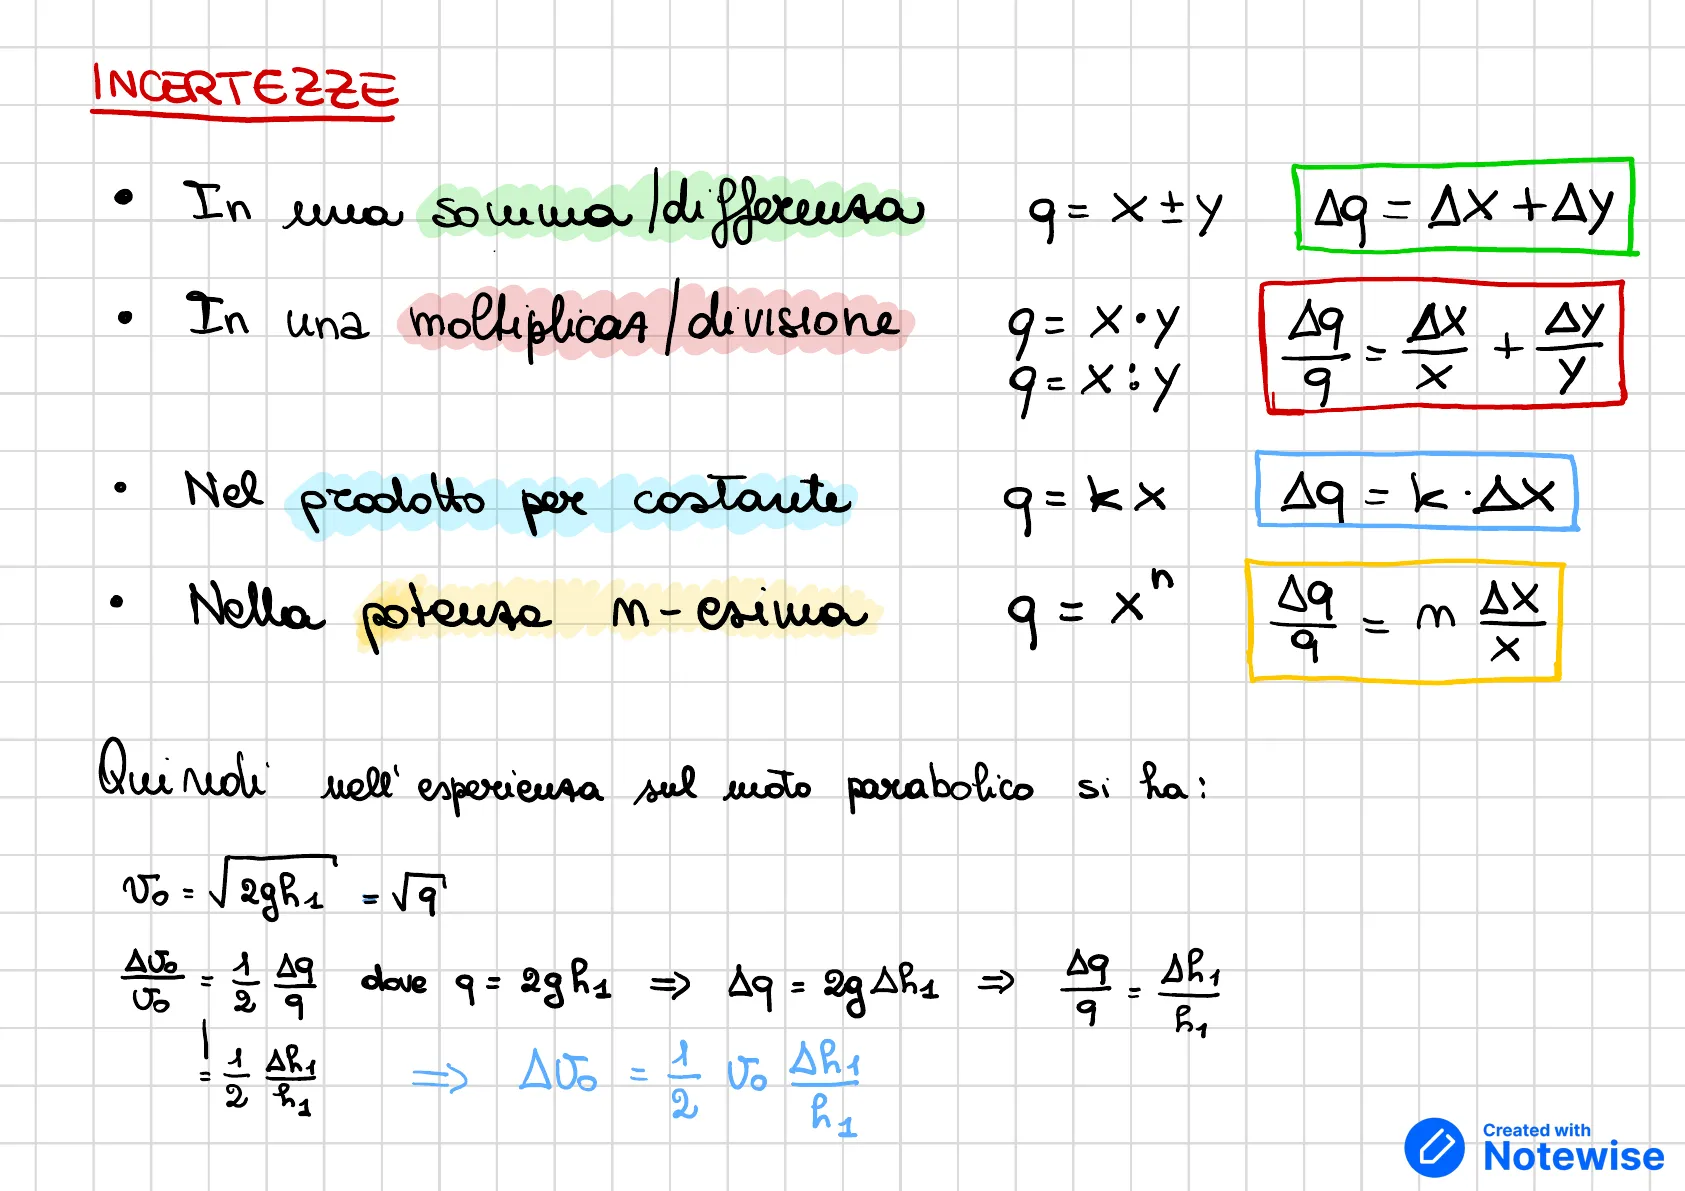 INCERTEZZE
• In una somma/differenza q = x ± y Δq = Δx + Δy
• In una moltiplicaz/divisione q = x · y Δq/q = Δx/x + Δy/y
q = x : y
• Nel prodotto per costante q = k x Δq = k · Δx
• Nella potenza n-esima q = xⁿ Δq/q = n Δx/x
Quindi nell'esperienza sul moto parabolico si ha:
v₀ = √(2gh₁) = √q
Δv₀/v₀ = 1/2 Δq/q dove q = 2gh₁ ⇒ Δq = 2gΔh₁ ⇒ Δq/q = Δh₁/h₁
= 1/2 Δh₁/h₁ ⇒ Δv₀ = 1/2 v₀ Δh₁/h₁
Created with
Notewise